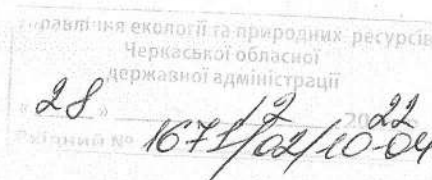 управління екології та природних ресурсів
Черкаської обласної
державної адміністрації
« 28 » 12 2022
Вхідний № 1671/02/10-04